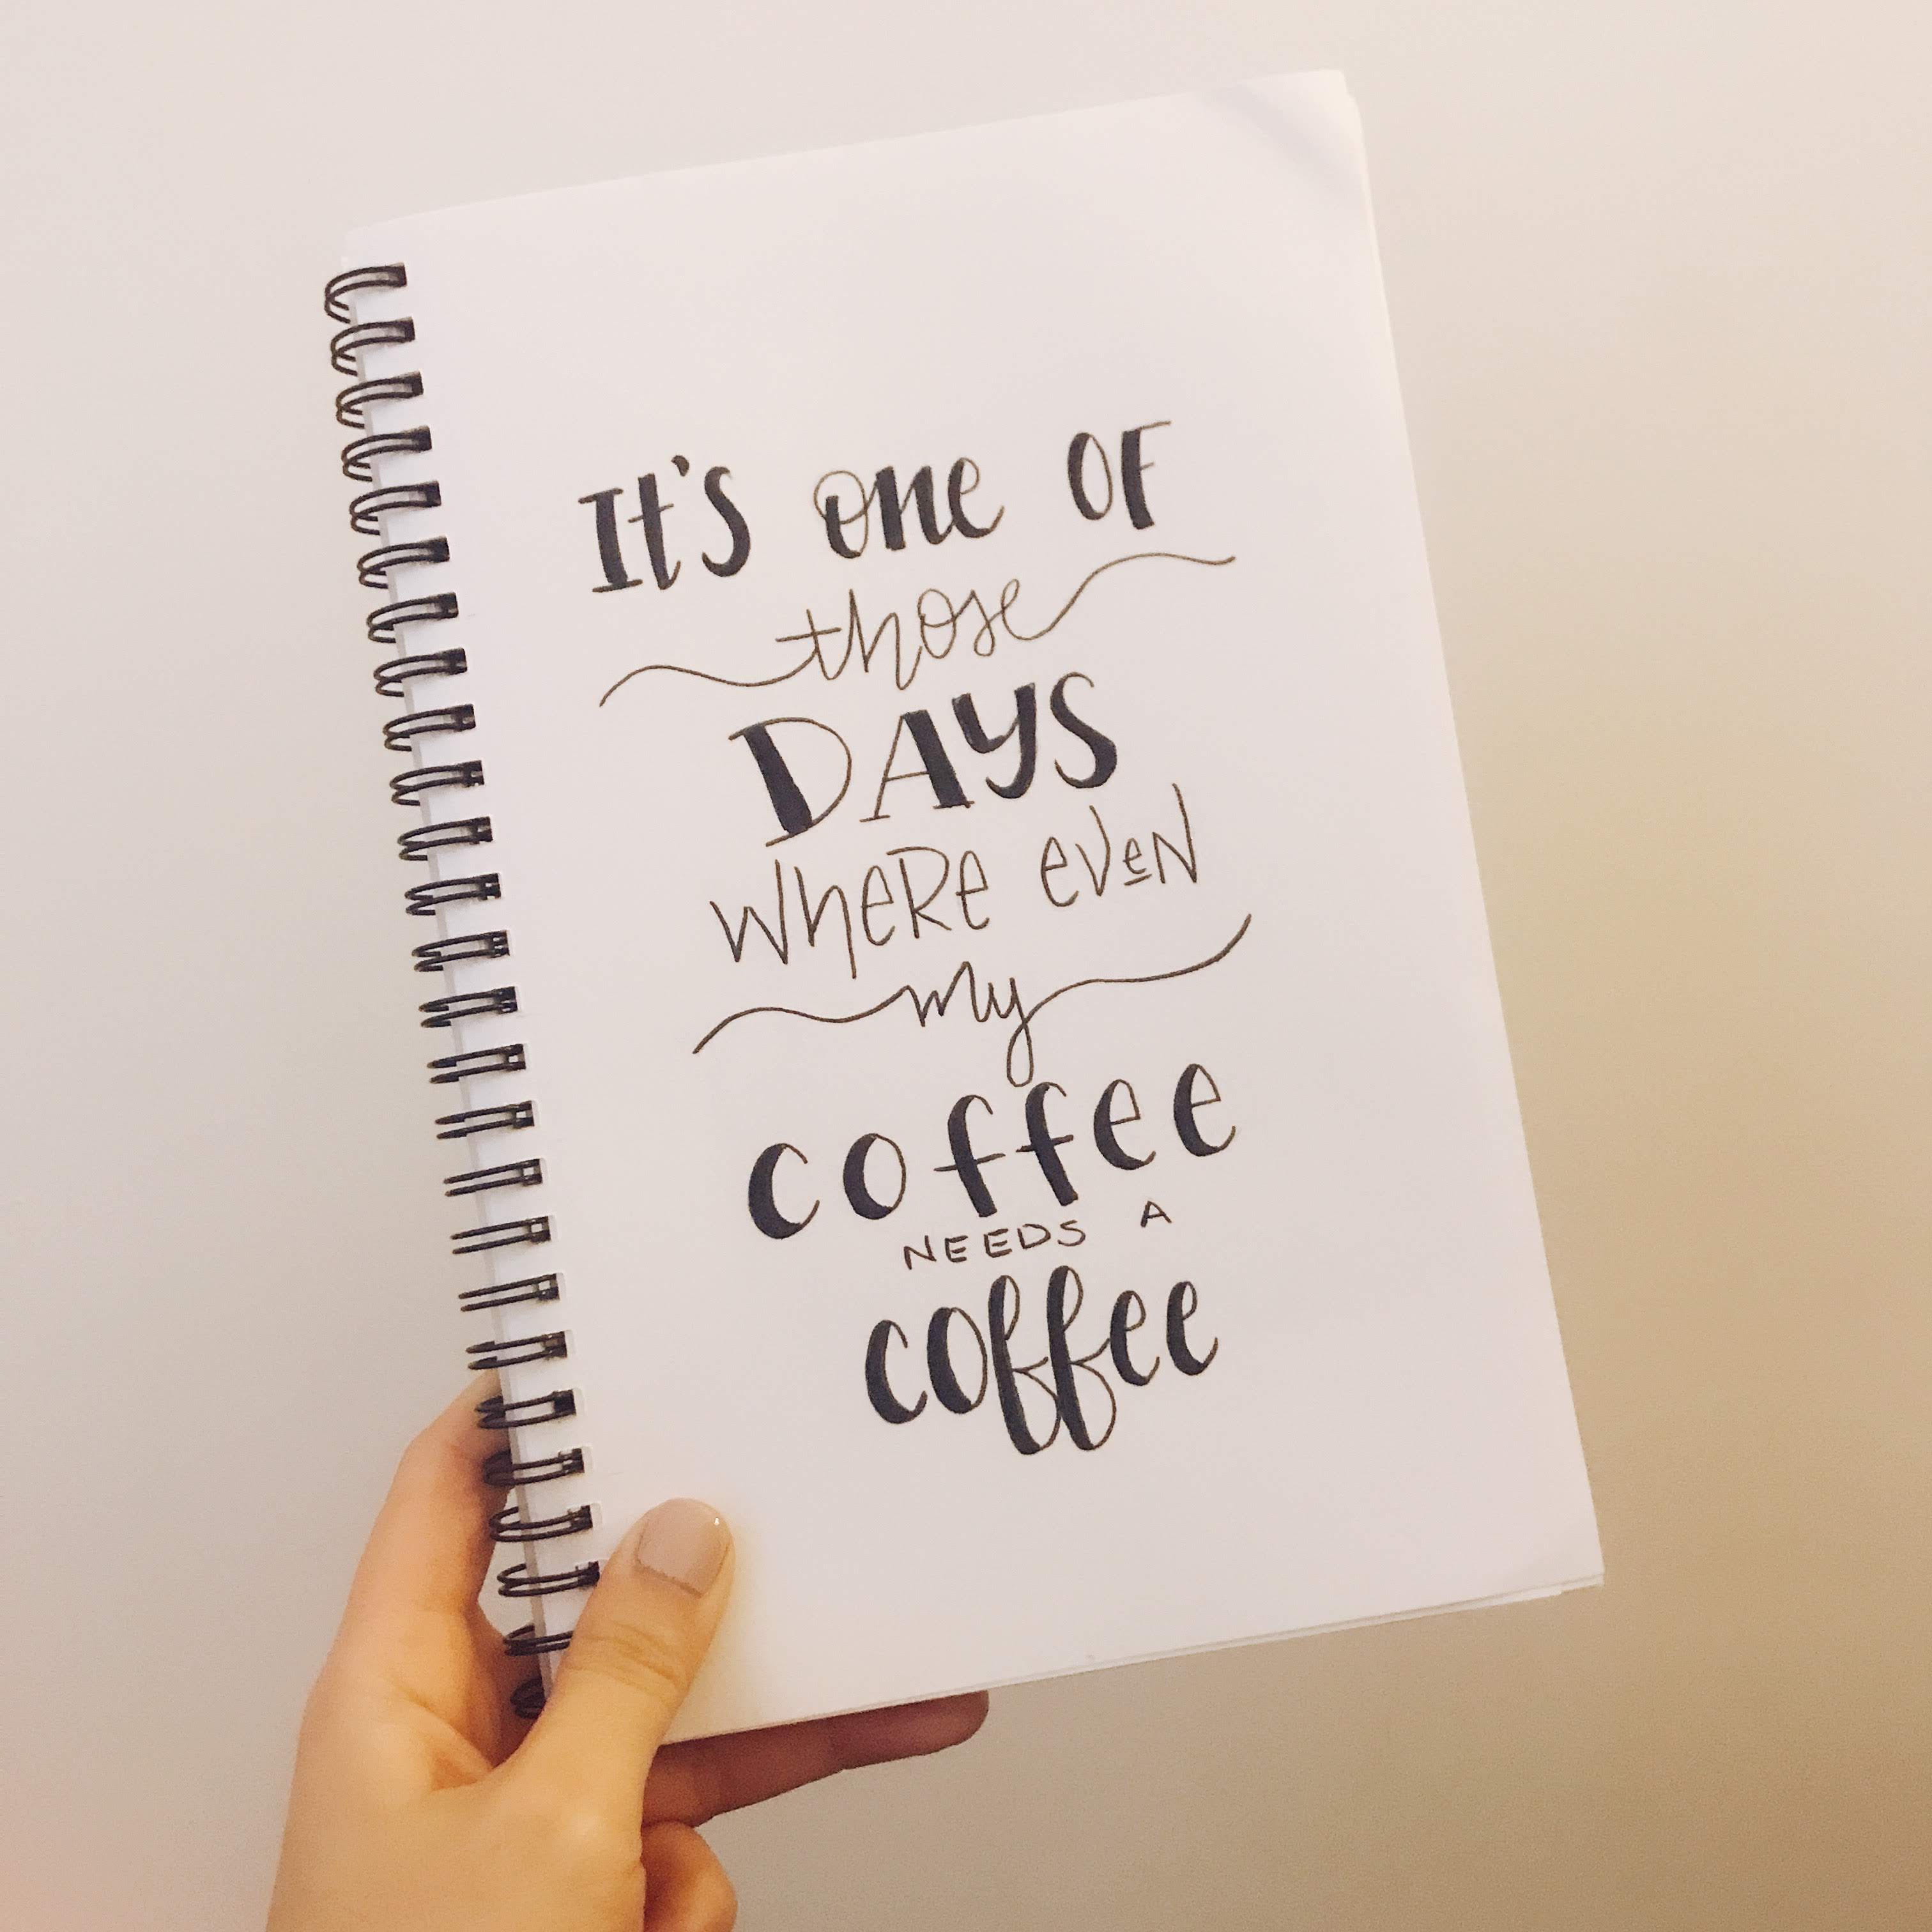 It's one OF
those
DAYS
wheRe eveN
my
coffee
NEEDS A
coffee